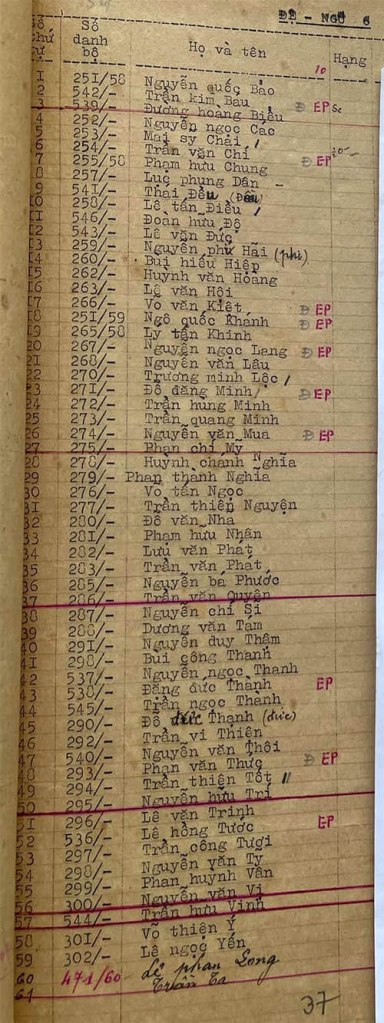 ĐỆ - NGŨ 6
Số thứ tự Số danh bộ Họ và tên Hạng
10
1 251/58 Nguyễn quốc Bảo
2 542/- Trần kim Bau
3 539/- Dương hoàng Biểu Đ EP Sc
4 252/- Nguyễn ngọc Các
5 253/- Mai sy Chải
6 254/- Trần văn Chi
7 255/58 Phạm hưu Chung Đ EP
8 257/- Luc phụng Dân -
9 541/- Thái Đều (Đều)
10 258/- Lê tấn Điều /
11 546/- Đoàn hưu Độ
12 543/- Lê văn Đức
13 259/- Nguyễn phu Hãi (phi)
14 260/- Bui hiếu Hiệp
15 262/- Huỳnh văn Hoàng
16 263/- Lê văn Hội
17 266/- Vo văn Kiệt Đ EP
18 251/59 Ngô quốc Khánh Đ EP
19 265/58 Ly tấn Khinh
20 267/- Nguyễn ngọc Lang Đ EP
21 268/- Nguyễn văn Lâu
22 270/- Trương minh Lộc /
23 271/- Đỗ đăng Minh / Đ EP
24 272/- Trần hùng Minh
25 273/- Trần quang Minh
26 274/- Nguyễn văn Mua Đ EP
27 275/- Phan chí My
28 278/- Huỳnh chanh Nghĩa
29 279/- Phan thành Nghia
30 276/- Vo tấn Ngọc
31 277/- Trần thiện Nguyện
32 280/- Đỗ văn Nha
33 281/- Phạm hưu Nhân
34 282/- Lưu văn Phat
35 283/- Trần văn Phat
36 285/- Nguyễn bá Phước
37 286/- Trần văn Quyên
38 287/- Nguyễn chí Si
39 288/- Dương văn Tam
40 291/- Nguyễn duy Thậm
41 298/- Bui công Thanh
42 537/- Nguyễn ngọc Thanh
43 538/- Đăng đức Thành EP
44 545/- Trần ngọc Thành
45 290/- Đỗ đức Thạnh (đức)
46 292/- Trần vi Thiện
47 540/- Nguyễn văn Thôi
48 293/- Phan văn Thức Đ EP
49 294/- Trần thiện Tốt //
50 295/- Nguyễn hữu Trí
51 296/- Lê văn Trinh EP
52 536/- Lê hồng Tươc
53 297/- Trần công Tươi
54 298/- Nguyễn văn Ty
55 299/- Phan huỳnh Vân
56 300/- Nguyễn văn Vi
57 544/- Trần hưu Vinh
58 301/- Võ thiện Ý
59 302/- Lê ngọc Yến
60 471/60 Lê phan Long
61 Trần Ta
37